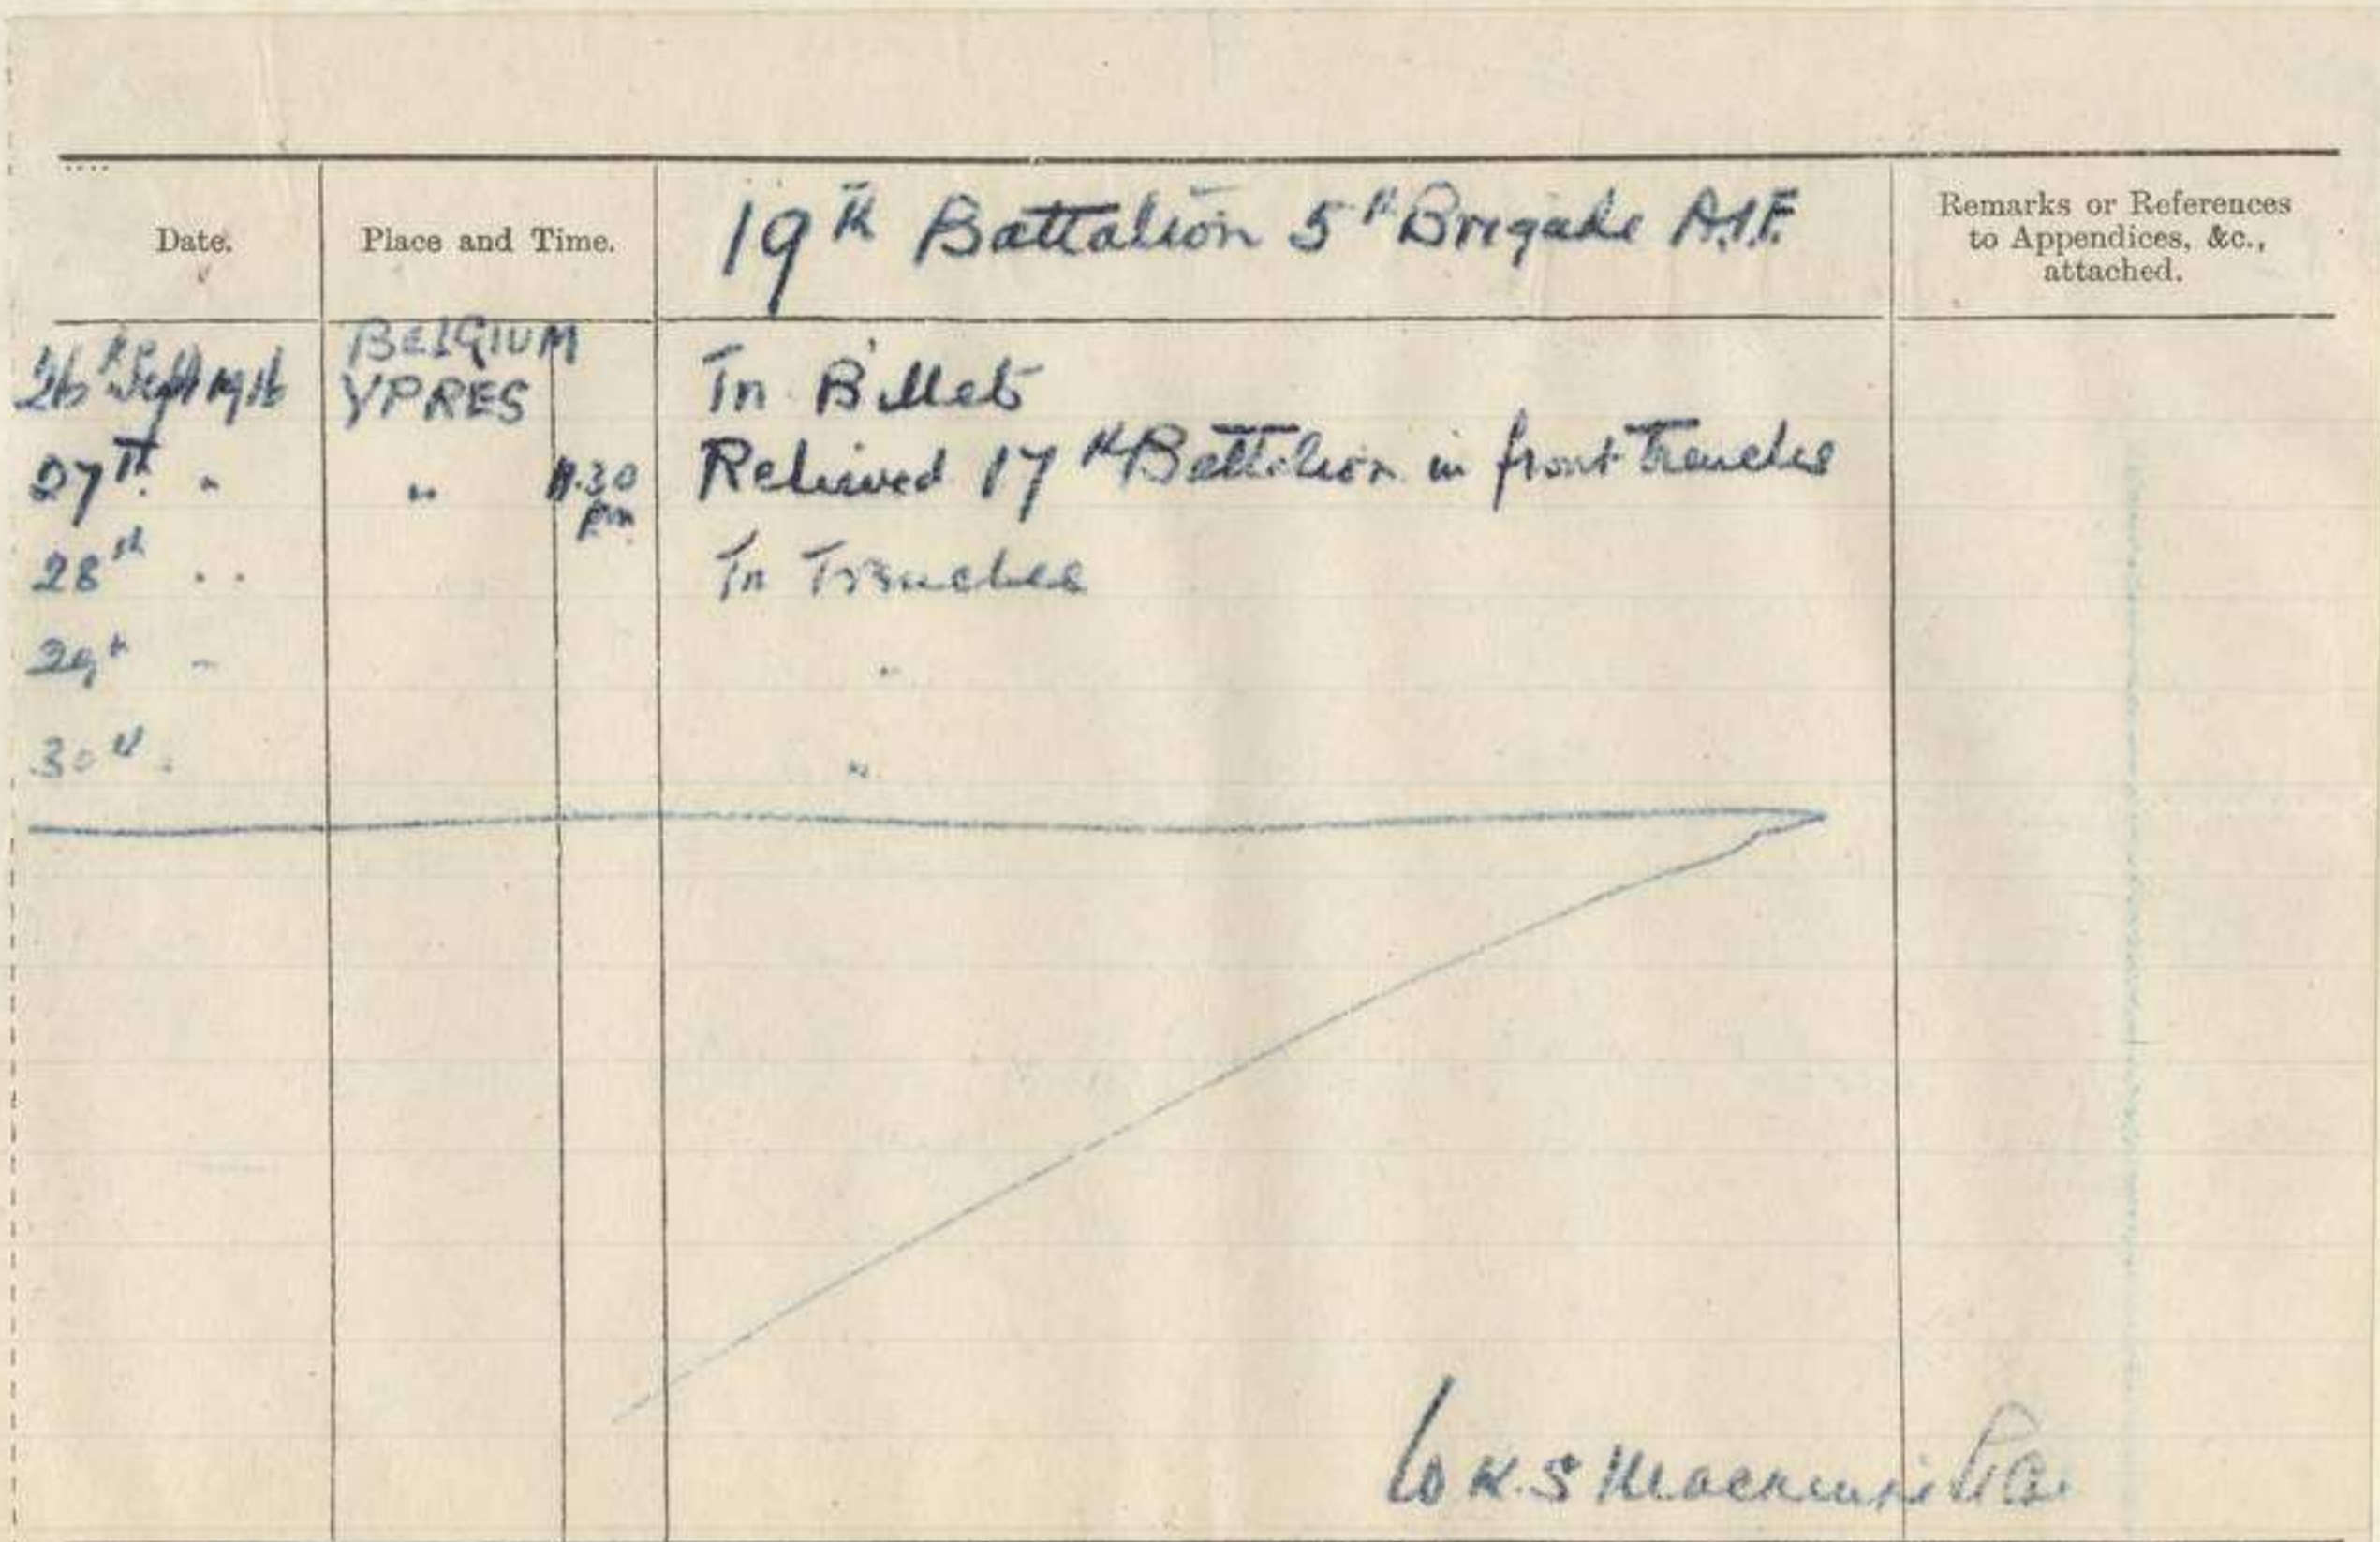 Date.
Place and Time.
19th Battalion 5th Brigade A.I.F.
Remarks or References
to Appendices, &c.,
attached.
26th Sept 1916 BELGIUM
YPRES In Billets
27th " " 11.30 pm Relieved 17th Battalion in front Trenches
28th " In Trenches
29th " "
30th " "
W K. S Mackenzie